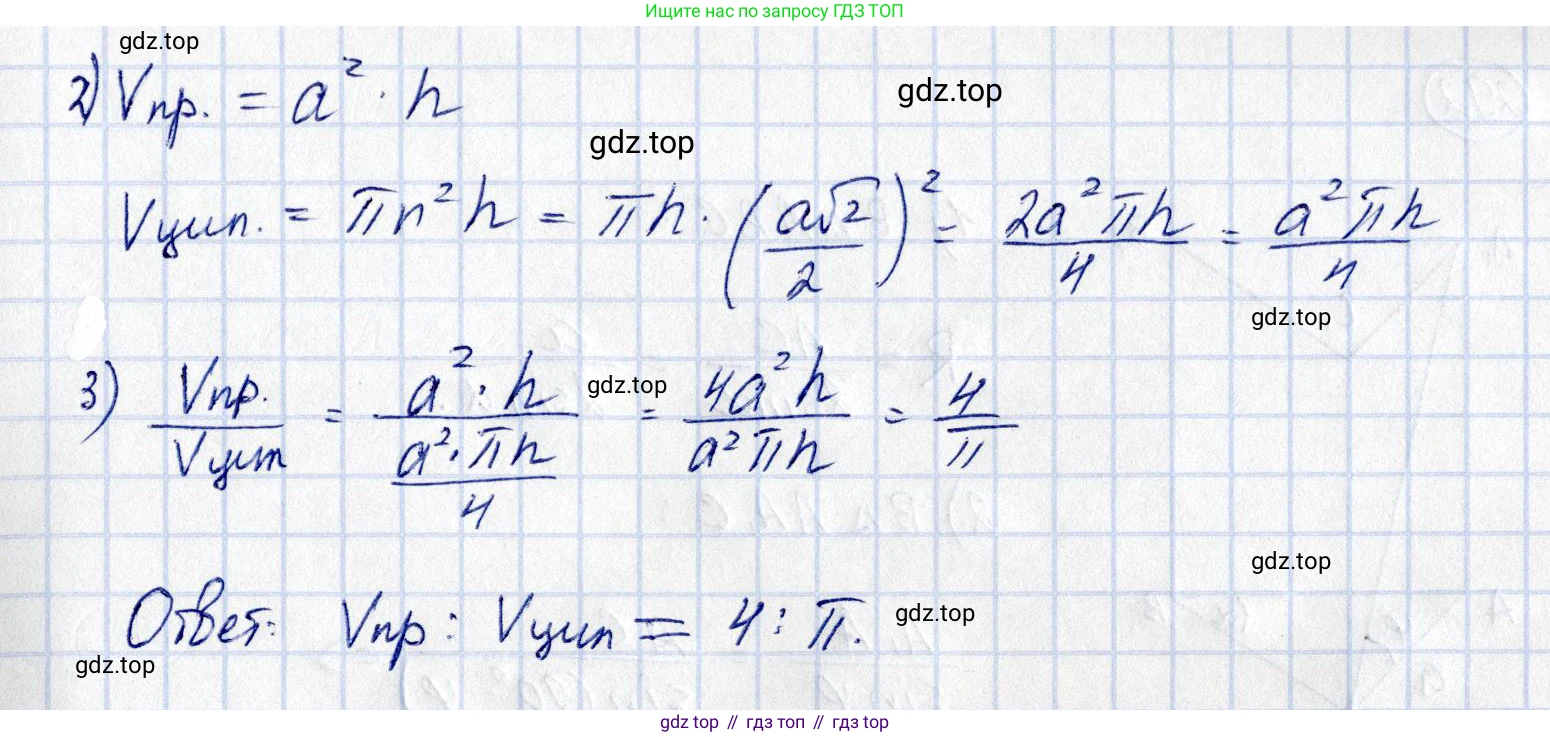 Ищите нас по запросу ГДЗ ТОП
gdz.top
2) Vпр. = a² · h
gdz.top
gdz.top
Vцил. = πr²h = πh · (a√2/2)² = 2a²πh/4 = a²πh/4
gdz.top
3) Vпр./Vцил = a² · h/(a² · πh/4) = 4a²h/a²πh = 4/π
gdz.top
gdz.top
Ответ: Vпр : Vцил = 4 : π.
gdz.top
gdz.top
gdz top // гдз топ // гдз top